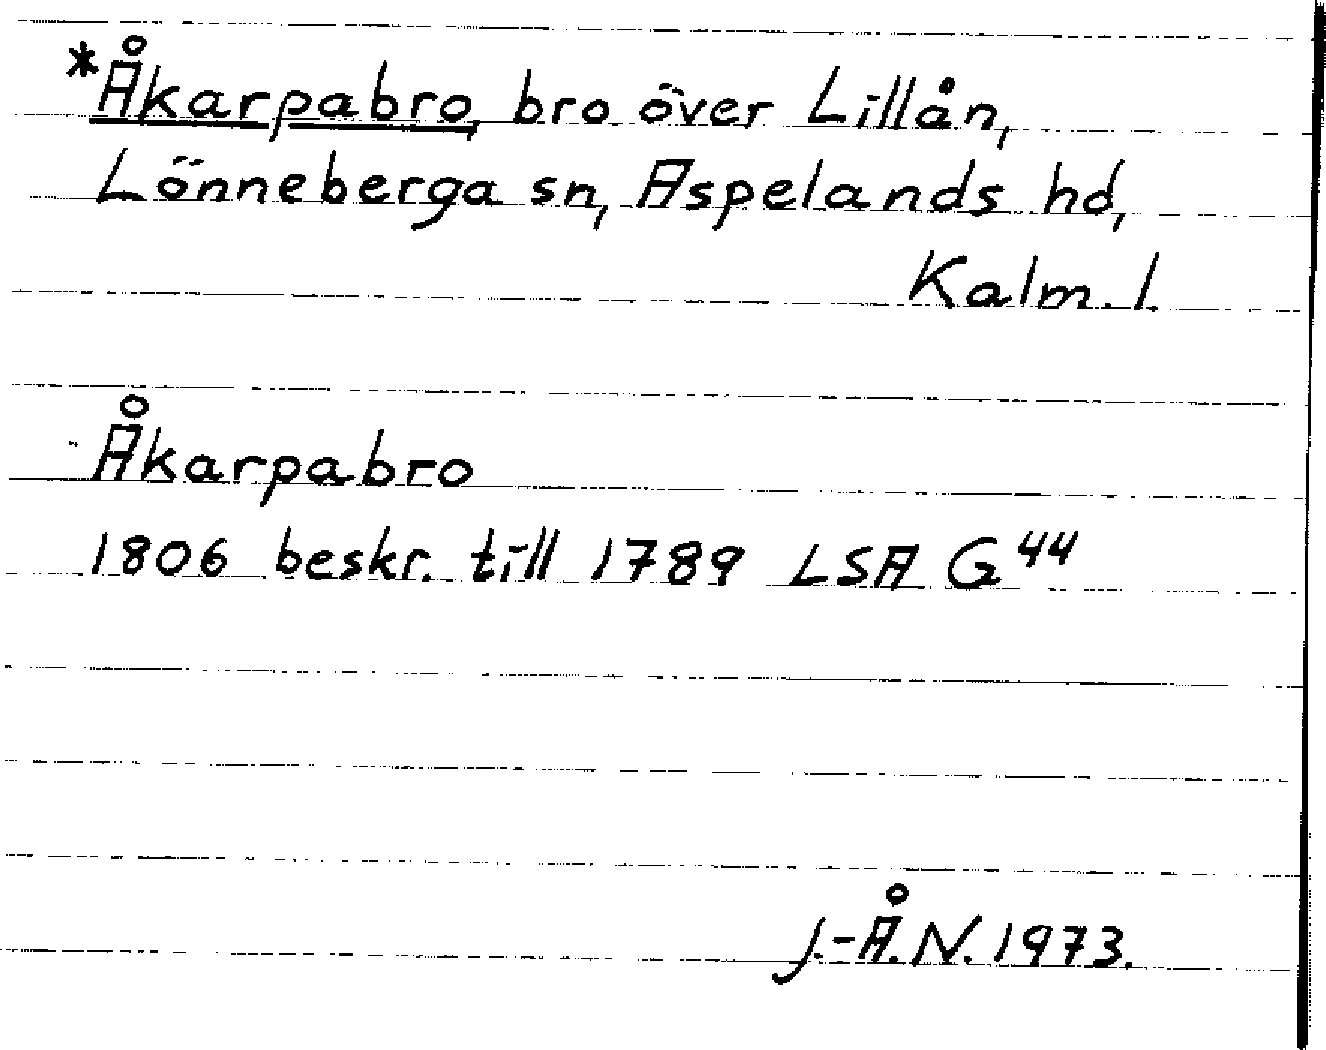 *Åkarpabro, bro över Lillån,
Lönneberga sn, Aspelands hd,
Kalm. l.
Åkarpabro
1806 beskr. till 1789 LSA G44
J.-Å.N. 1973.